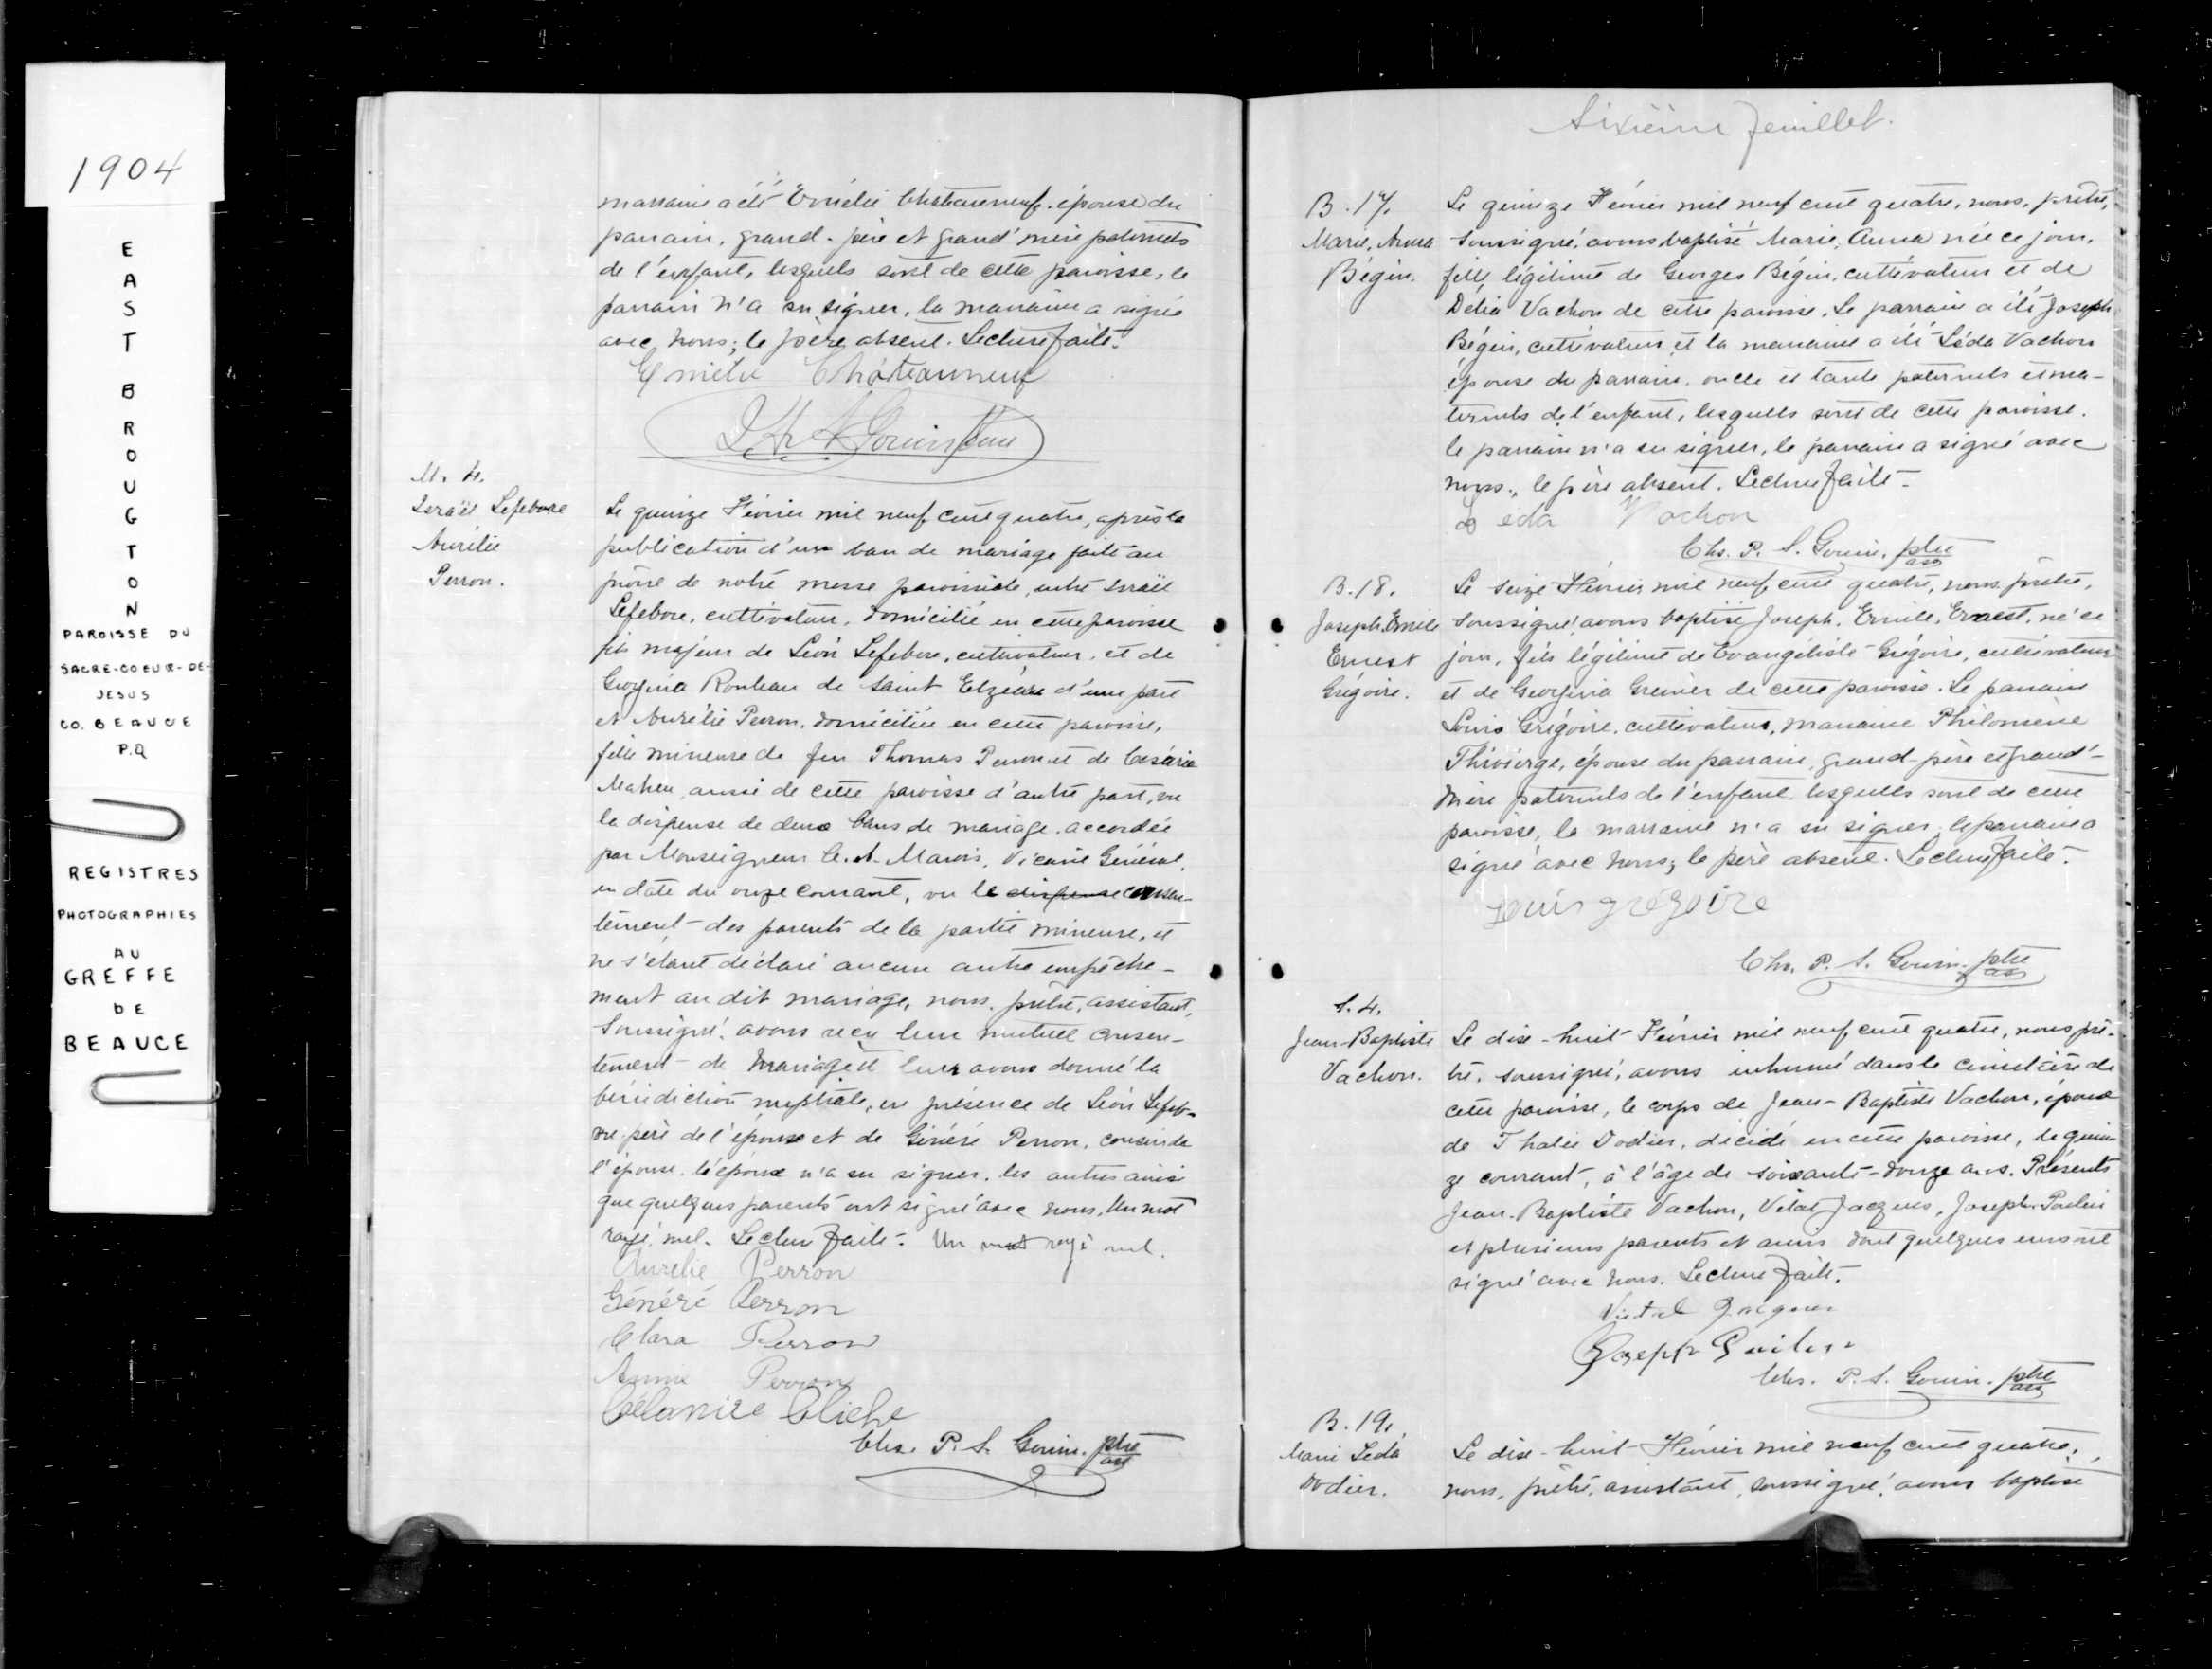 1904
EAST BROUGTON
PAROISSE DU
SACRE-COEUR-DE-
JESUS
CO. BEAUCE
P.Q
REGISTRES
PHOTOGRAPHIES
AU
GREFFE
DE
BEAUCE
marraine a été Emélie Chateauneuf épouse du
parrain, grand-père et grand'mère paternels
de l'enfant, lesquels sont de cette paroisse, le
parrain n'a su signer, la marraine a signé
avec nous; le père absent. Lecture faite.
Emélie Châteauneuf
M. 4.
Israël Lefebvre
Aurélie
Perron.
Le quinze Février mil neuf cent quatre, après la
publication d'un ban de mariage faite au
prône de notre messe paroissiale, entre Israël
Lefebvre, cultivateur, domicilié en cette paroisse
fils majeur de Léon Lefebvre, cultivateur, et de
Georgina Rouleau de Saint Elzéar d'une part
et Aurélie Perron, domiciliée en cette paroisse,
fille mineure de feu Thomas Perron et de Césarie
Maheu, aussi de cette paroisse d'autre part, vu
la dispense de deux bans de mariage accordée
par Monseigneur C. A. Marois, Vicaire Général,
en date du onze courant, vu le dispense consen-
tement des parents de la partie mineure, et
ne s'étant déclaré aucun autre empêche-
ment au dit mariage, nous, prêtre, assistant,
soussigné, avons reçu leur mutuel consen-
tement de mariage et leur avons donné la
bénédiction nuptiale, en présence de Léon Lefeb-
vre père de l'époux et de Généré Perron, cousin de
l'épouse. l'époux n'a su signer. les autres ainsi
que quelques parents ont signé avec nous. Un mot
rayé nul. Lecture faite. Un mot rayé nul.
Aurelie Perron
Généré Perron
Clara Perron
Annie Perron
Célanire Cliche
Chs. P. S. Gouin. ptre
ass
Sixième feuillet.
B. 17.
Marie, Anna
Bégin.
Le quinze Février mil neuf cent quatre, nous, prêtre,
soussigné, avons baptisé Marie, Anna née ce jour,
fille légitime de Georges Bégin, cultivateur et de
Délia Vachon de cette paroisse. Le parrain a été Joseph
Bégin, cultivateur, et la marraine a été Léda Vachon
épouse du parrain, oncle et tante paternels et ma-
ternels de l'enfant, lesquels sont de cette paroisse.
le parrain n'a su signer, le parraine a signé avec
nous., le père absent. Lecture faite.
Leda Vachon
Chs. P. S. Gouin. ptre
ass
B. 18.
Joseph, Emile
Ernest
Grégoire.
Le seize Février mil neuf cent quatre, nous, prêtre,
soussigné, avons baptisé Joseph, Emile, Ernest, né ce
jour, fils légitime de Evangéliste Grégoire, cultivateur
et de Georgina Grenier de cette paroisse. Le parrain
Louis Grégoire, cultivateur, marraine Philomène
Thivierge, épouse du parrain, grand-père et grand'-
mère paternels de l'enfant, lesquels sont de cette
paroisse, la marraine n'a su signer, le parrain a
signé avec nous; le père absent. Lecture faite.
Louis grégoire
Chs. P. S. Gouin. ptre
ass
S. 4.
Jean-Baptiste
Vachon.
Le dix-huit Février mil neuf cent quatre, nous prê-
tre, soussigné, avons inhumé dans le cimetière de
cette paroisse, le corps de Jean-Baptiste Vachon, époux
de Thalie Dodier, décédé en cette paroisse, le quin-
ze courant, à l'âge de soixante-douze ans. Présents
Jean-Baptiste Vachon, Vital Jacques, Joseph Poulin
et plusieurs parents et amis dont quelques uns ont
signé avec nous. Lecture faite.
Vital Jacques
Joseph
Chs. P. S. Gouin. ptre
ass
B. 19.
Marie Léda
Dodier.
Le dix-huit Février mil neuf cent quatre,
nous, prêtre, assistant, soussigné, avons baptisé